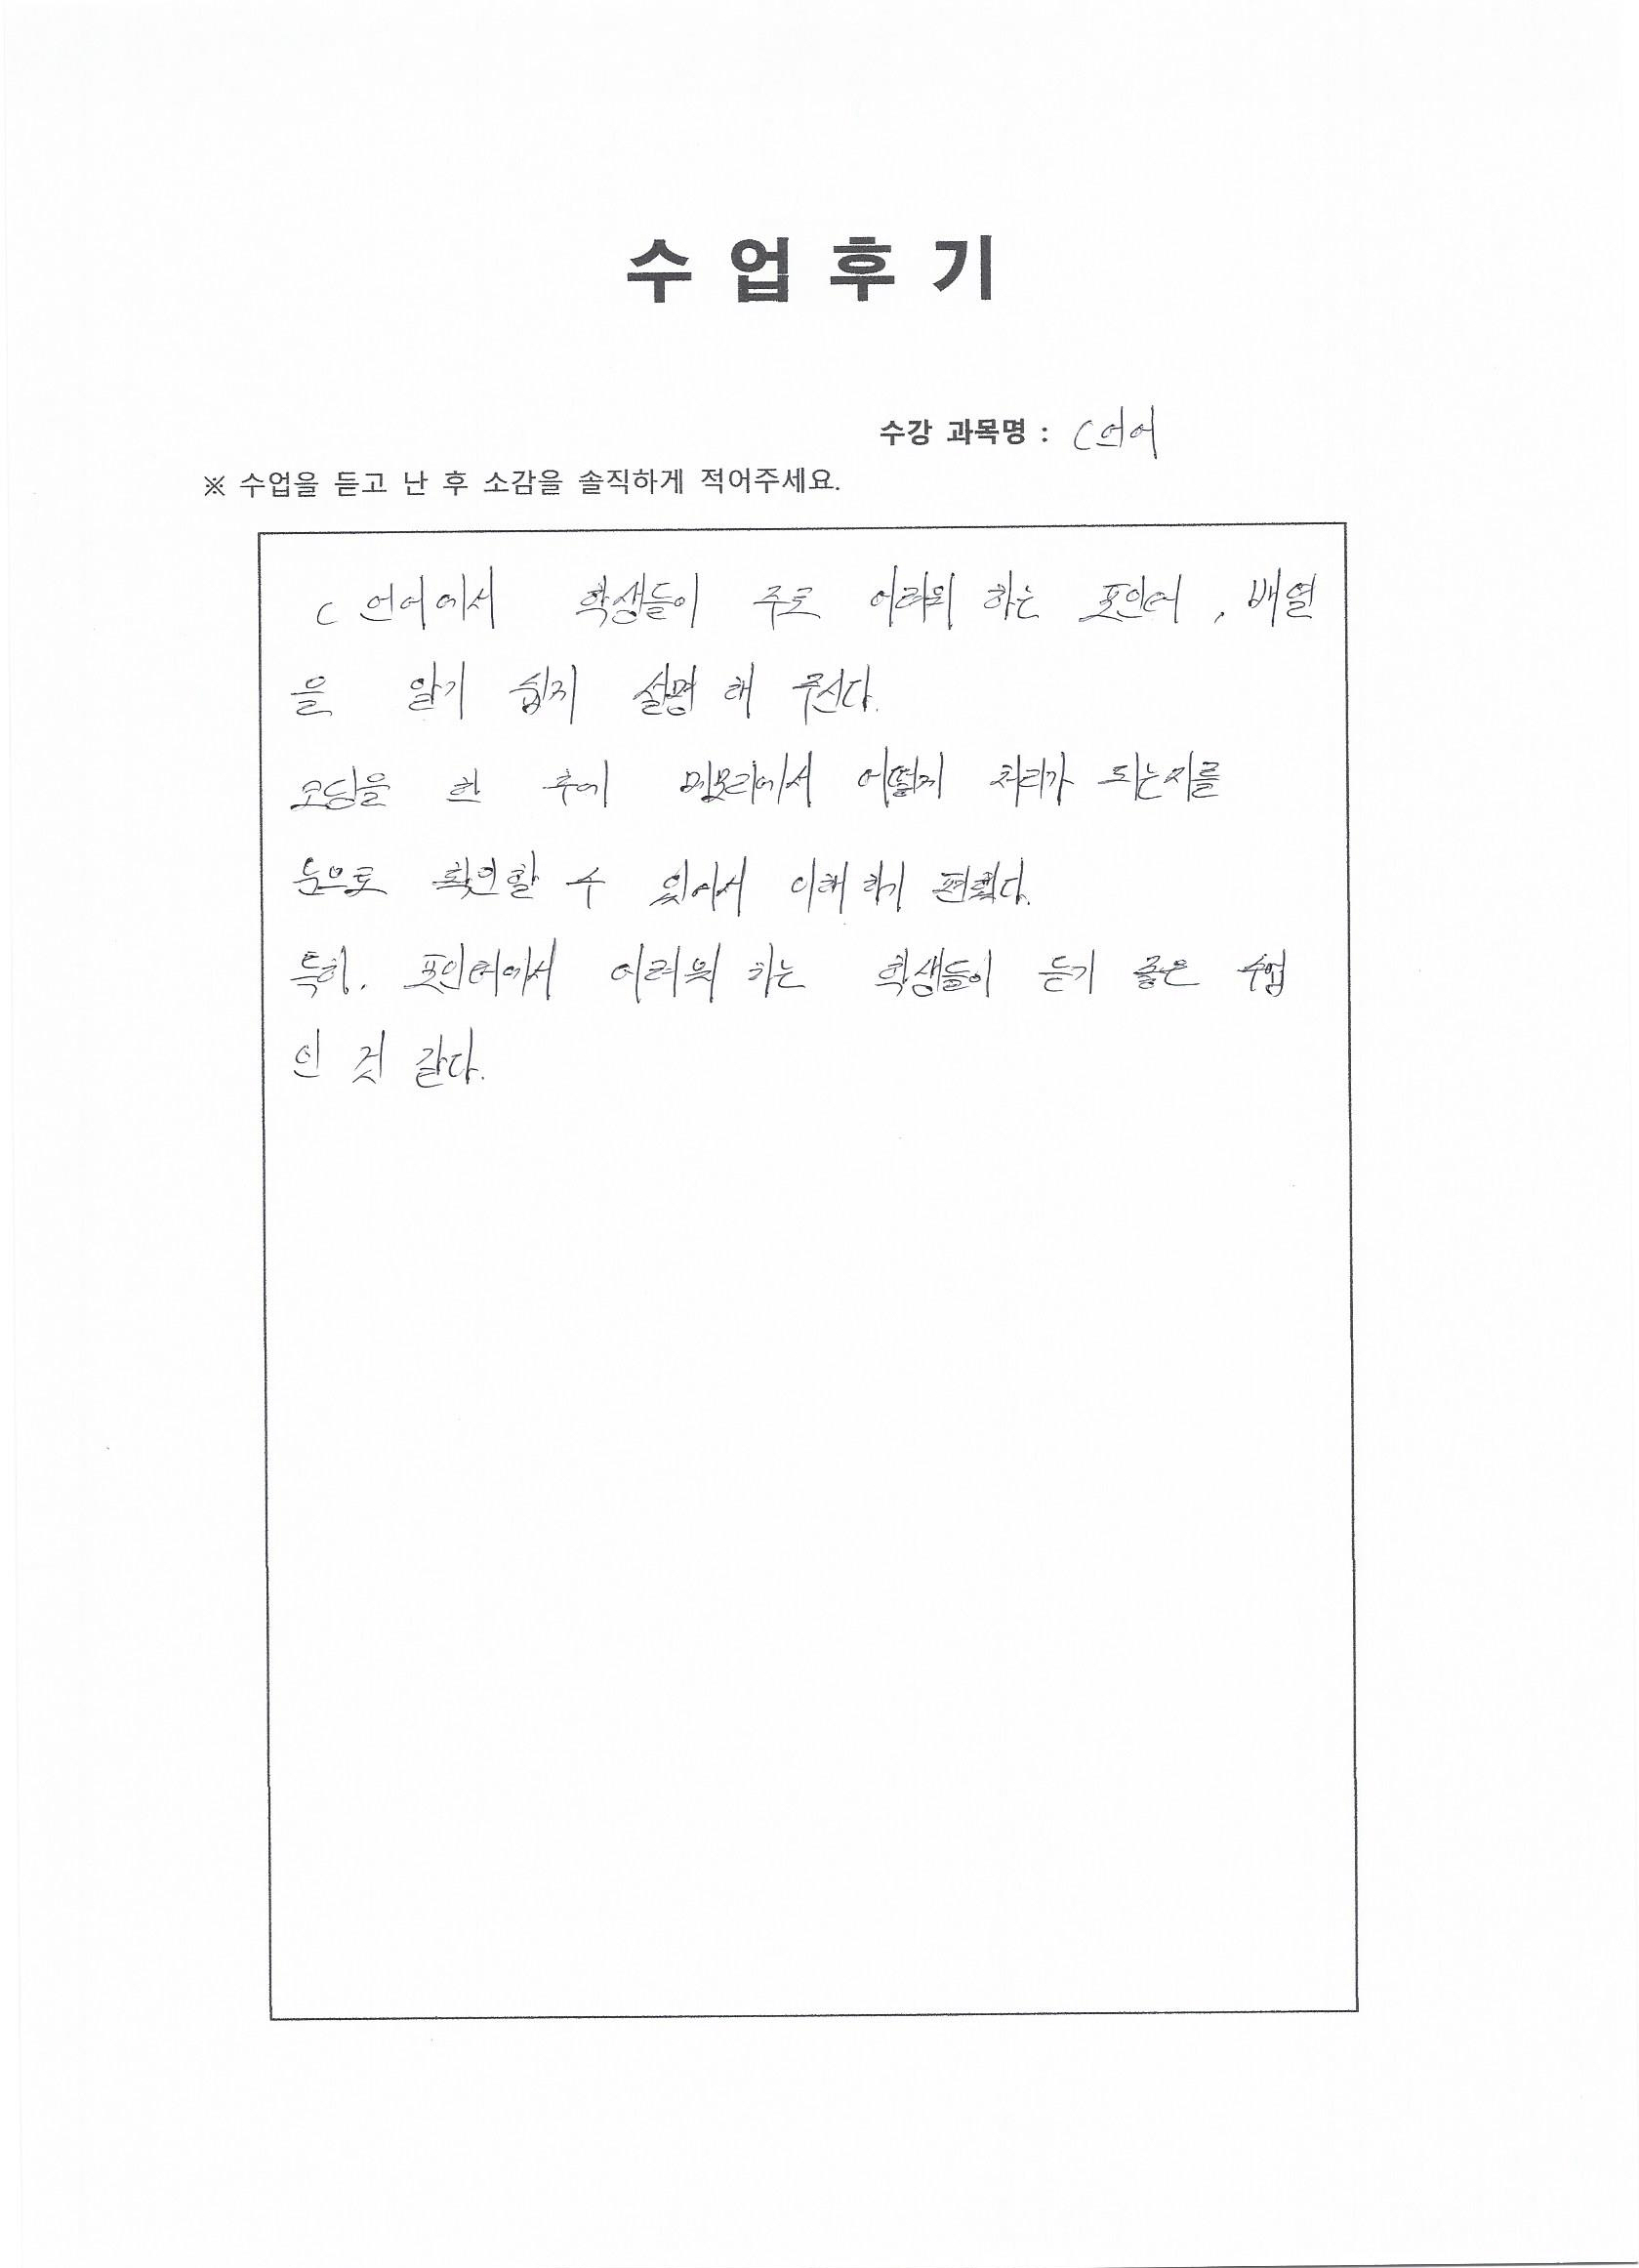 수업후기
수강 과목명 : C언어
※ 수업을 듣고 난 후 소감을 솔직하게 적어주세요.
C 언어에서 학생들이 주로 어려워 하는 포인터, 배열
을 알기 쉽게 설명 해 주신다.
코딩을 한 후에 메모리에서 어떻게 처리가 되는지를
눈으로 확인할 수 있어서 이해 하기 편했다.
특히, 포인터에서 어려워 하는 학생들이 듣기 좋은 수업
인 것 같다.